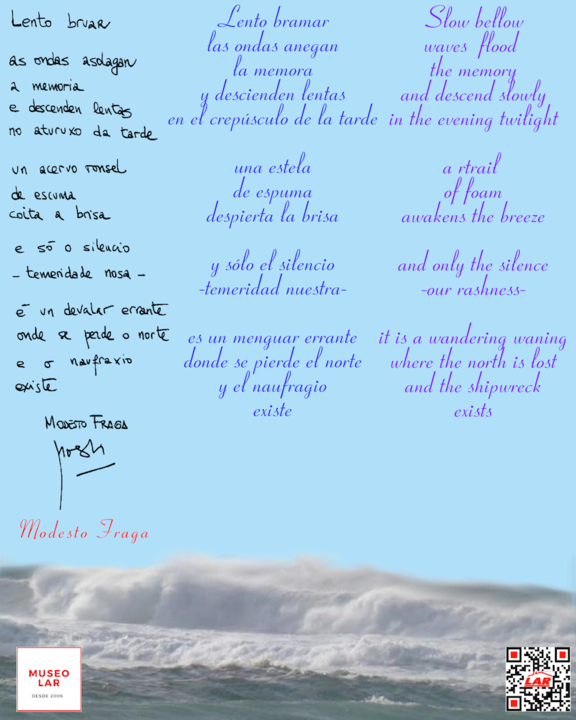 Lento bruar
as ondas asolagan
a memoria
e descenden lentas
no aturuxo da tarde
un acervo ronsel
de escuma
coita a brisa
e só o silencio
- temeridade nosa -
é un devalar errante
onde se perde o norte
e o naufraxio
existe
Modesto Fraga
Modesto Fraga
Lento bramar
las ondas anegan
la memora
y descienden lentas
en el crepúsculo de la tarde
una estela
de espuma
despierta la brisa
y sólo el silencio
-temeridad nuestra-
es un menguar errante
donde se pierde el norte
y el naufragio
existe
Slow bellow
waves flood
the memory
and descend slowly
in the evening twilight
a rtrail
of foam
awakens the breeze
and only the silence
-our rashness-
it is a wandering waning
where the north is lost
and the shipwreck
exists
MUSEO
LAR
DESDE 2006
LAR